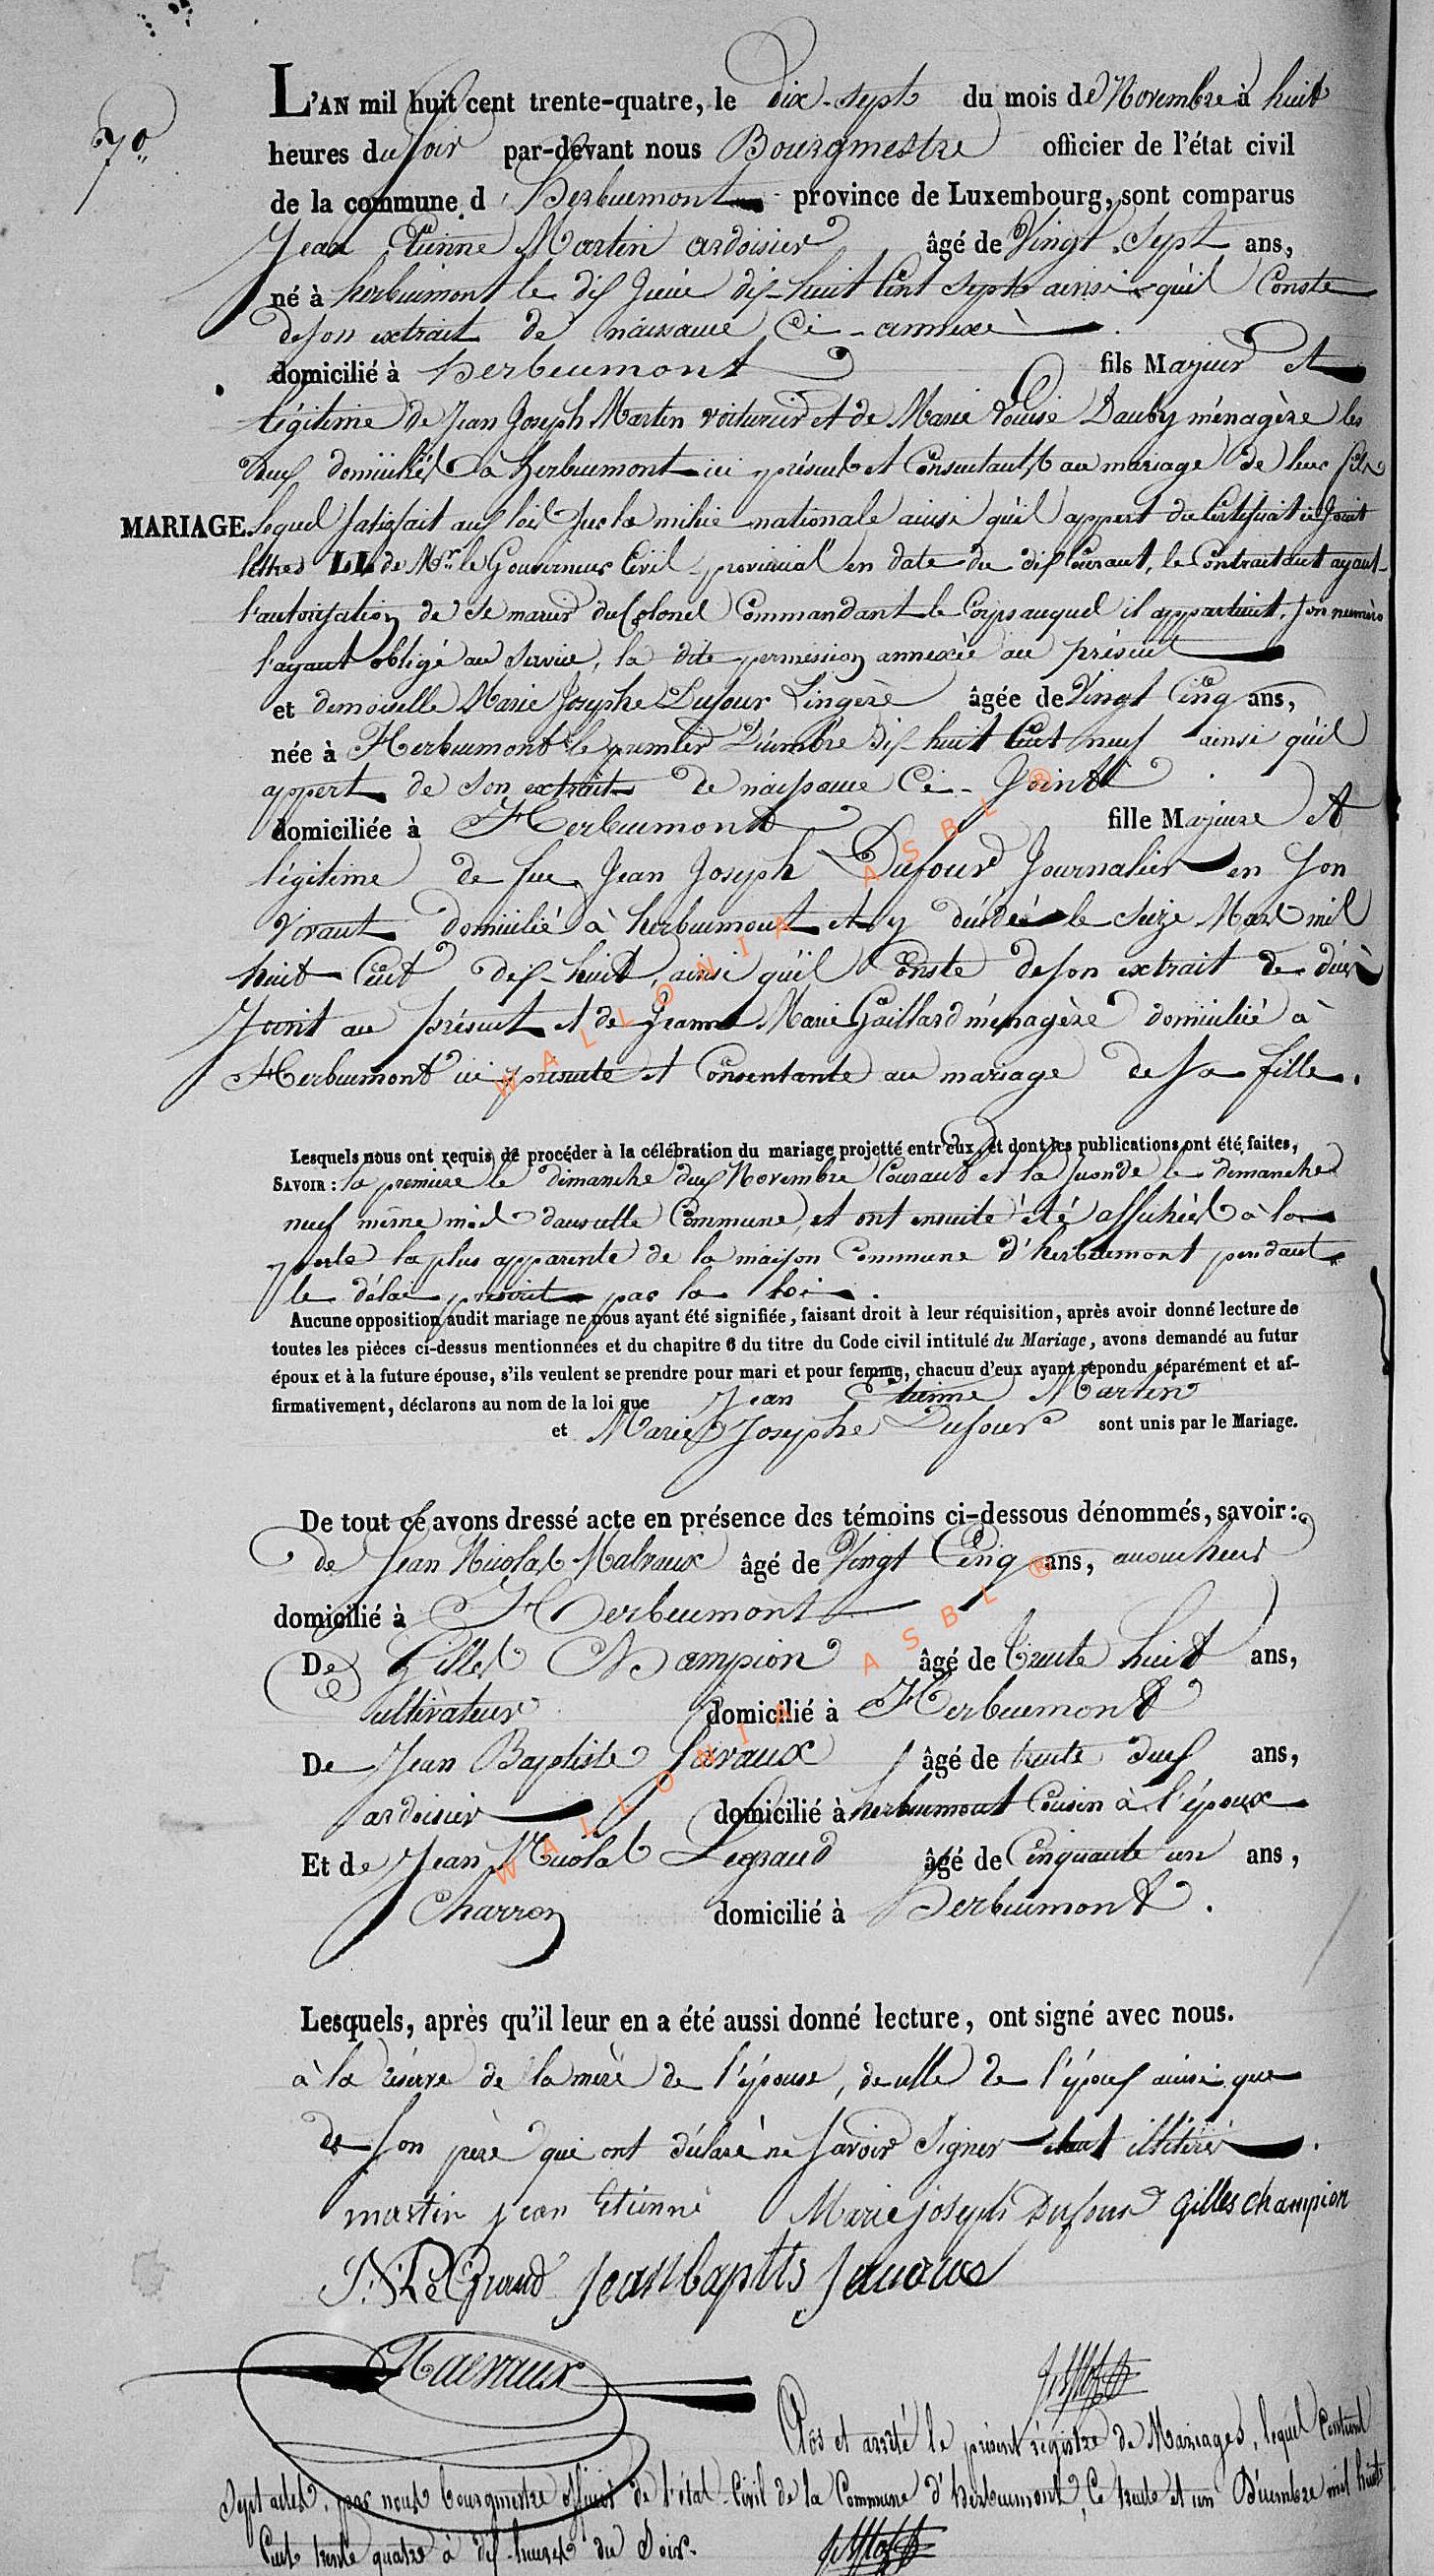 7°
L'AN mil huit cent trente-quatre, le dix-sept du mois de Novembre à huit
heures du soir par-devant nous Bourgmestre officier de l'état civil
de la commune d'herbeumont province de Luxembourg, sont comparus
Jean Etienne Martin ardoisier âgé de Vingt-Sept ans,
né à herbeumont le dix dix-huit Cent Sept ainsi qu'il Conste
de son extrait de naissance Ci-annexé
domicilié à herbeumont fils Majeur et
légitime de Jean Joseph Martin voiturier et de Marie Louise Bauby ménagère les
deux domiciliés à herbeumont ici présents et Consentants au mariage de leur fils
MARIAGE. lequel satisfait aux lois sur la milice nationale ainsi qu'il appert du Certificat ci Joint
lettres LL de Mr. le Gouverneur Civil provincial en date du dix Courant, le Contractant ayant
l'autorisation de se marier du Colonel Commandant le Corps auquel il appartient, son numéro
l'ayant obligé au Service, la dite permission annexée au présent
et demoiselle Marie Josephe Dufour Lingère âgée de Vingt Cinq ans,
née à Herbeumont le premier Décembre dix-huit Cent neuf ainsi qu'il
appert de son extrait de naissance Ci-Joint
domiciliée à Herbeumont fille Majeure et
légitime de feu Jean Joseph Dufour Journalier en son
vivant domicilié à herbeumont et y décédé le Seize Mars mil
huit Cent dix-huit, ainsi qu'il Conste de son extrait de décès
Joint au présent et de Jeanne Marie Gaillard ménagère domiciliée à
Herbeumont ici présente et Consentante au mariage de sa fille.
Lesquels nous ont requis de procéder à la célébration du mariage projetté entr'eux, et dont les publications ont été faites,
SAVOIR : la première le dimanche deux Novembre Courant et la seconde le dimanche
neuf même mois dans cette Commune, et ont ensuite été affichées à la
porte la plus apparente de la maison Commune d'herbeumont pendant
le délai prescrit par la loi.
Aucune opposition audit mariage ne nous ayant été signifiée, faisant droit à leur réquisition, après avoir donné lecture de
toutes les pièces ci-dessus mentionnées et du chapitre 6 du titre du Code civil intitulé du Mariage, avons demandé au futur
époux et à la future épouse, s'ils veulent se prendre pour mari et pour femme, chacun d'eux ayant répondu séparément et af-
firmativement, déclarons au nom de la loi que Jean Etienne Martin
et Marie Josephe Dufour sont unis par le Mariage.
De tout ce avons dressé acte en présence des témoins ci-dessous dénommés, savoir :
de Jean Nicolas Malvaux âgé de Vingt Cinq ans, accoucheur
domicilié à Herbeumont
De Gilles Champion âgé de trente huit ans,
Cultivateur domicilié à Herbeumont
De Jean Baptiste Javaux âgé de trente deux ans,
ardoisier domicilié à herbeumont Cousin à l'époux
Et de Jean Nicolas Legrand âgé de Cinquante un ans,
Charron domicilié à herbeumont.
Lesquels, après qu'il leur en a été aussi donné lecture, ont signé avec nous.
à la réserve de la mère de l'épouse, de celle de l'époux ainsi que
de son père qui ont déclaré ne savoir signer étant illitérés.
martin jean Etienne Marie joseph Dufour Gilles champion
J. N. Le Grand jean baptis javaux
Malvaux
Clos et arrêté le présent régistre de Mariages, lequel Contient
Sept actes, par nous bourgmestre officier de l'état-Civil de la Commune d'herbeumont, Ce trente et un Décembre mil huit
Cent trente quatre à dix heures du Soir.
WALLONIA ASBL ®
WALLONIA ASBL ®